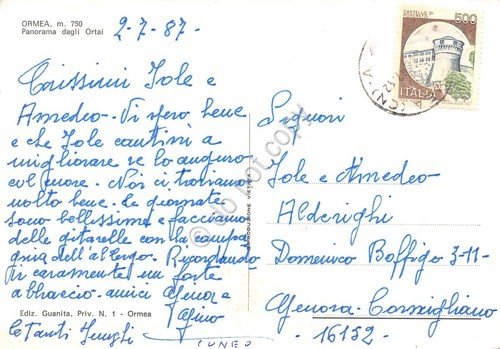 ORMEA, m. 750
Panorama dagli Ortai
2-7-87-
Carissimi Iole e
Amedeo - Vi spero bene
e che Iole continui a
migliorare ve lo auguro
col cuore. Noi ci troviamo
molto bene. Le giornate
sono bellissime e facciamo
delle gitarelle con la compa
gnia dell'albergo. Ricordando
Vi caramente un forte
abbraccio - amici
e Gino
Ediz. Guanita, Priv. N. 1 - Ormea
(CUNEO
RIPRODUZIONE VIETATA
do not copy
CASTELLO DI
ROVERETO
500
ITALIA
(CN)
Signori
Iole e Amedeo
Alderighi
Domenico Boffigo 3-11-
Genova - Cornigliano
- 16152 -